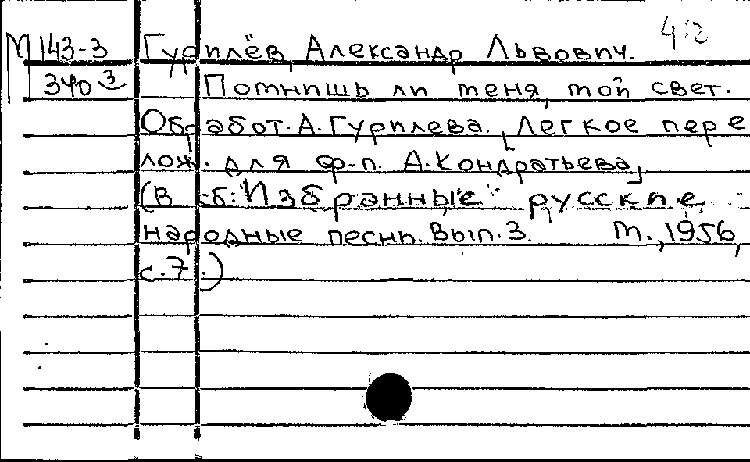 М 143-3 Гурилёв, Александр Львович. 412
340 3 Помнишь ли меня, мой свет.
Обработ. А. Гурилева. [Легкое пере
лож. для ф-п. А. Кондратьева]
(В сб: Избранные русские
народные песни. Вып. 3. М., 1956,
с. 7.)